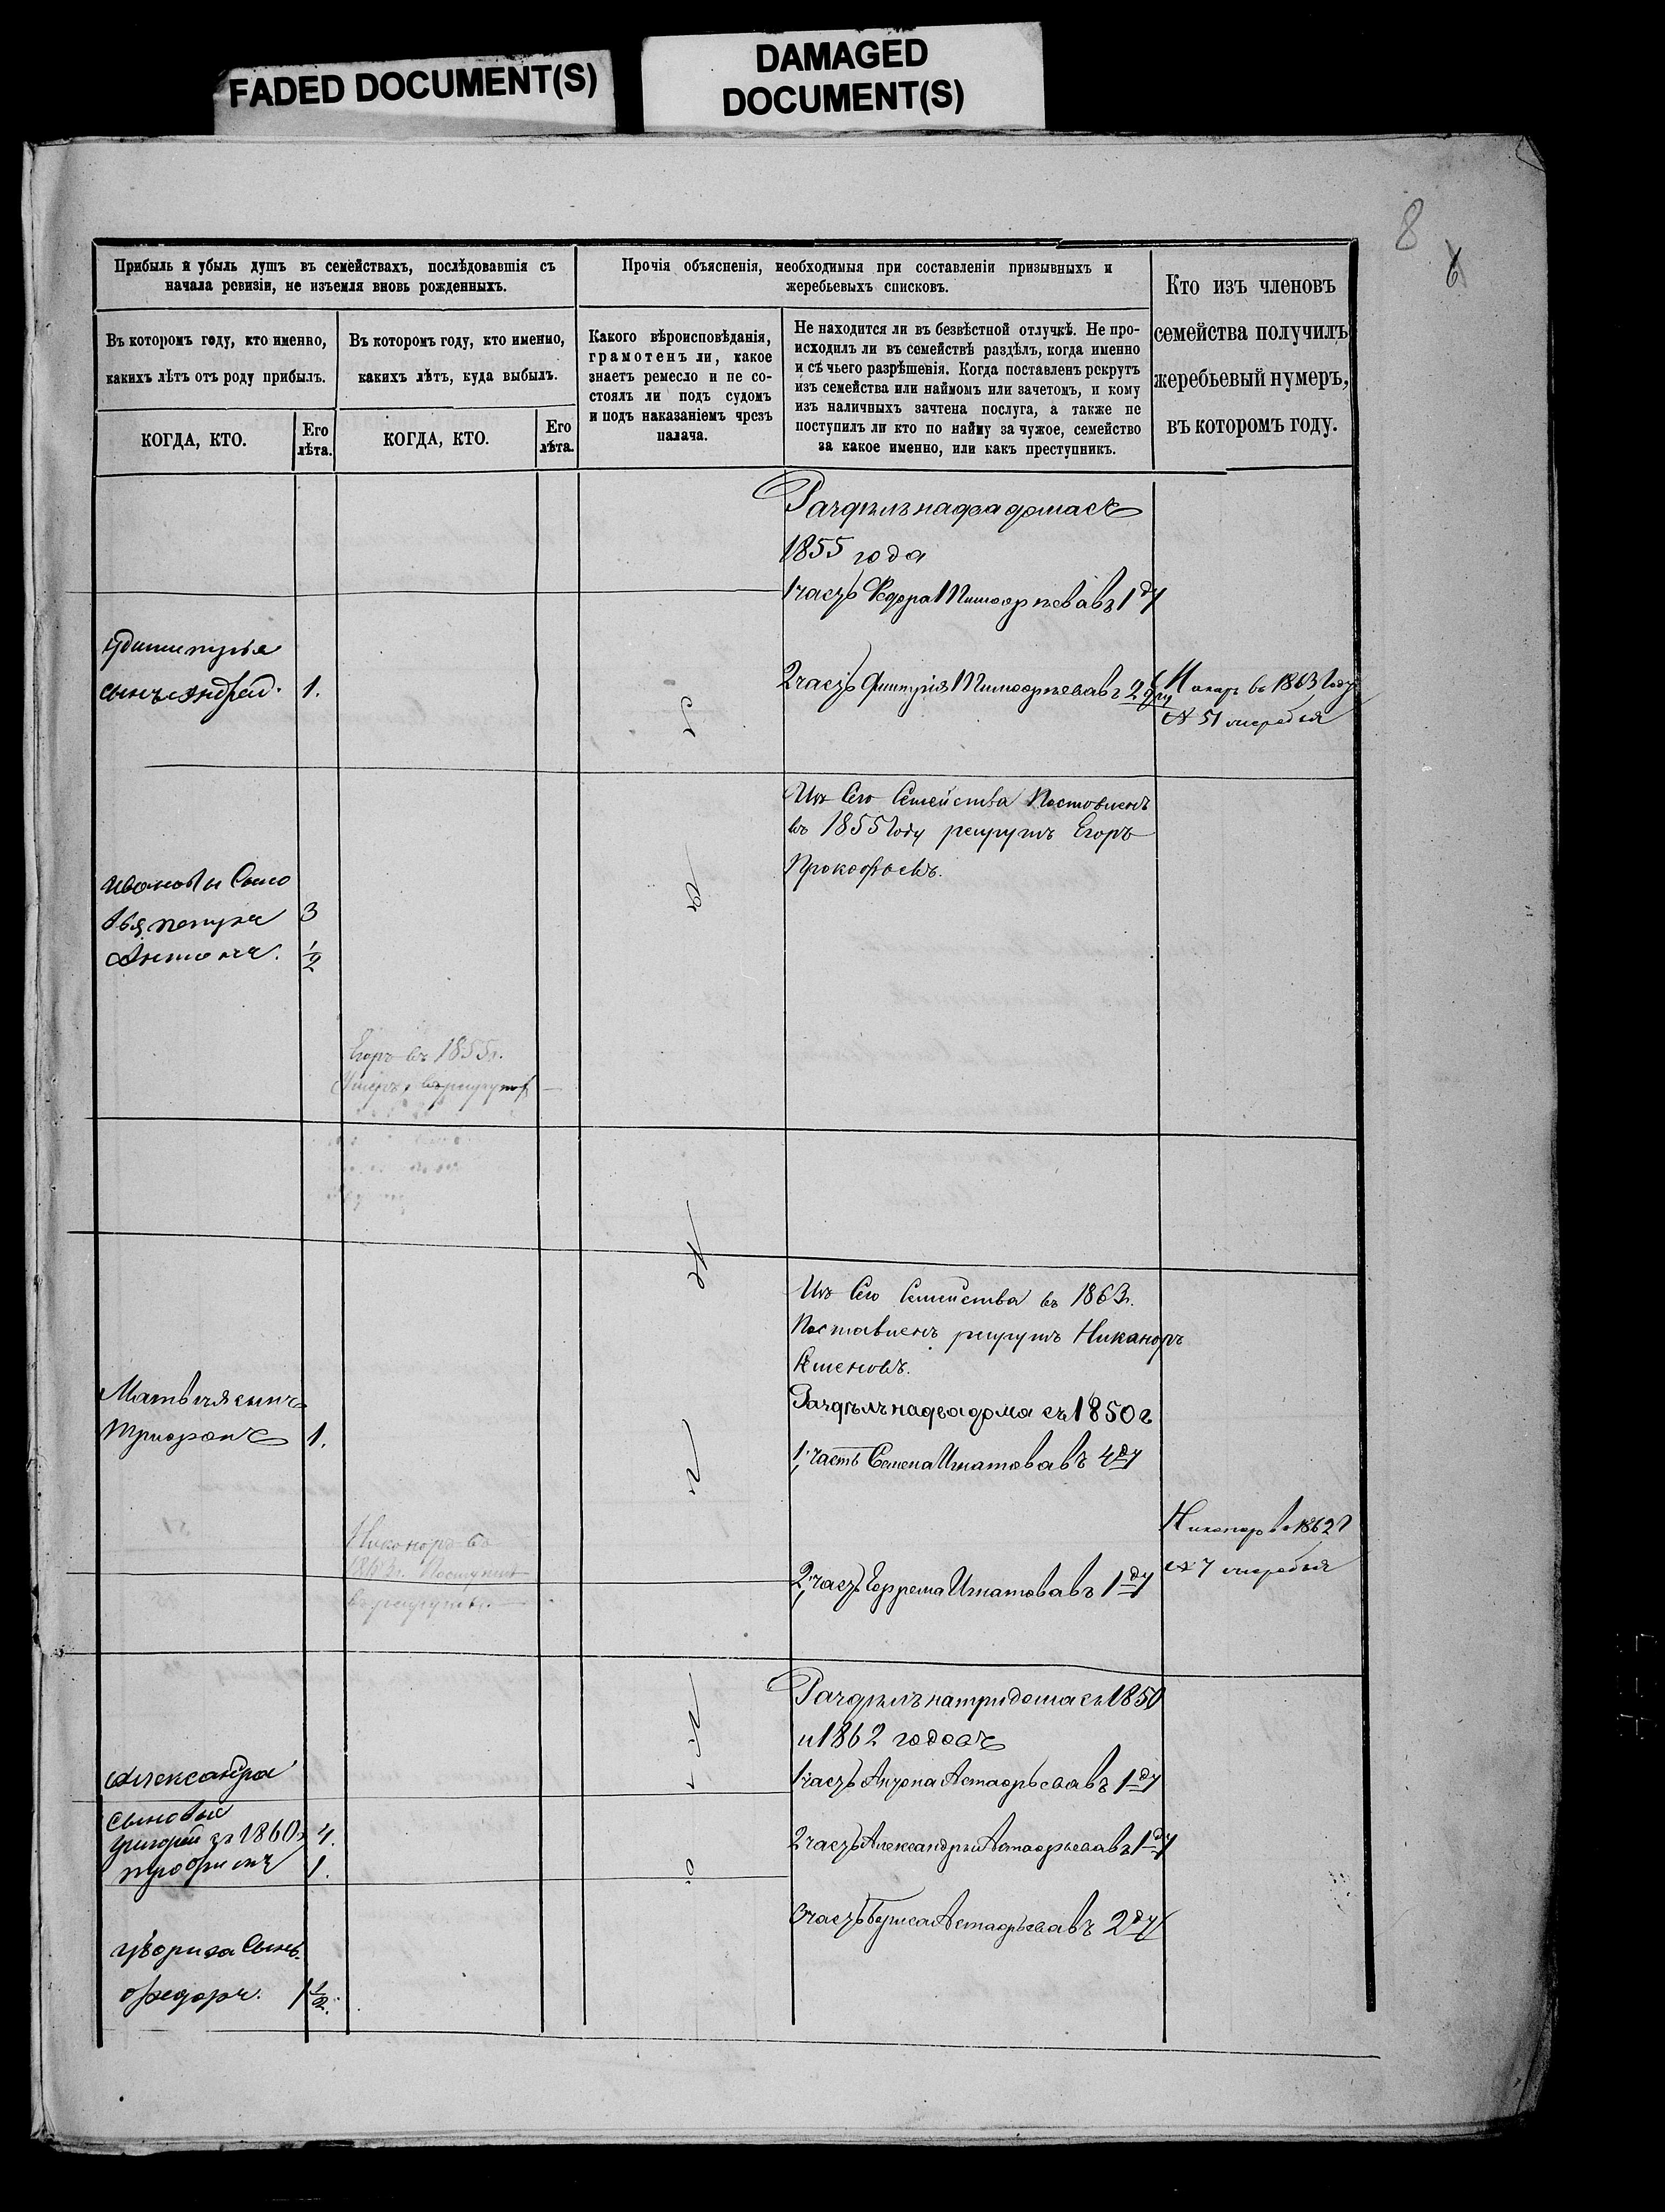 FADED DOCUMENT(S)
DAMAGED
DOCUMENT(S)
8
6
Прибыль и убыль душъ въ семействахъ, послѣдовавшія съ
начала ревизіи, не изъемля вновь рожденныхъ.
Въ которомъ году, кто именно,
какихъ лѣтъ отъ роду прибылъ.
КОГДА, КТО.
Его
лѣта.
Въ которомъ году, кто именно,
какихъ лѣтъ, куда выбылъ.
КОГДА, КТО.
Его
лѣта.
Прочія объясненія, необходимыя при составленіи призывныхъ и
жеребьевыхъ списковъ.
Какого вѣроисповѣданія,
грамотенъ ли, какое
знаетъ ремесло и не со-
стоялъ ли подъ судомъ
и подъ наказаніемъ чрезъ
палача.
Не находится ли въ безвѣстной отлучкѣ. Не про-
исходилъ ли въ семействѣ раздѣлъ, когда именно
и съ чьего разрѣшенія. Когда поставленъ рекрутъ
изъ семейства или наймомъ или зачетомъ, и кому
изъ наличныхъ зачтена послуга, а также не
поступилъ ли кто по найму за чужое, семейство
за какое именно, или какъ преступникъ.
Кто изъ членовъ
семейства получилъ
жеребьевый нумеръ,
въ которомъ году.
Раздѣлъ на два дома съ
1855 года
1 часть Федора Тимофѣева въ 1 ду
сынъ Андрей. 1.
2 часть Тимофѣева въ 2 ду
въ 1863 Году
№ 51 жеребья
Изъ Сего Семейства Поставленъ
въ 1855 Году рекрутъ Егоръ
Прокофьевъ.
Ивановы Сыно
вья 3
Антонъ. 1/2
Егоръ въ 1855 г.
въ рекруты
Изъ Сего Семейства въ 1863 г.
Поставленъ рекрутъ Никаноръ
Семеновъ.
Раздѣлъ на два дома съ 1850 г
Матвѣя сынъ
Трифонъ 1.
1 часть Семена Игнатова въ 4 ду
Никаноръ въ 1862 г
№ 7 жеребья
Никоноръ въ
1863 г. Поступилъ
въ рекруты.
2 часть Ефрема Игнатова въ 1 ду
Раздѣлъ на три дома съ 1850
и 1862 годовъ
1 часть Астафьева въ 1 ду
Александра
сыновья
Григорій въ 1860 г 4.
Трофимъ 1.
2 часть Александры Астафьева въ 1 ду
3 часть Астафьева въ 2 ду
Сынъ
Федоръ. 1 1/2.